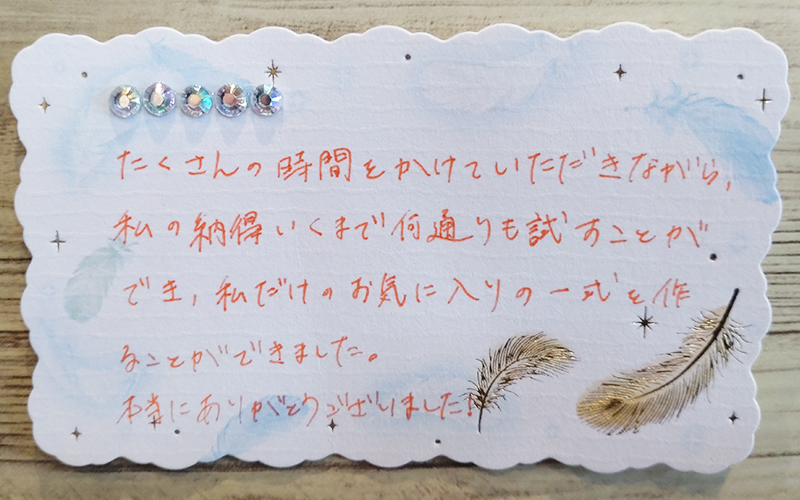 たくさんの時間をかけていただきながら,
私の納得いくまで何通りも試すことが
でき,私だけのお気に入りの一式を作
ることができました。
本当にありがとうございました!